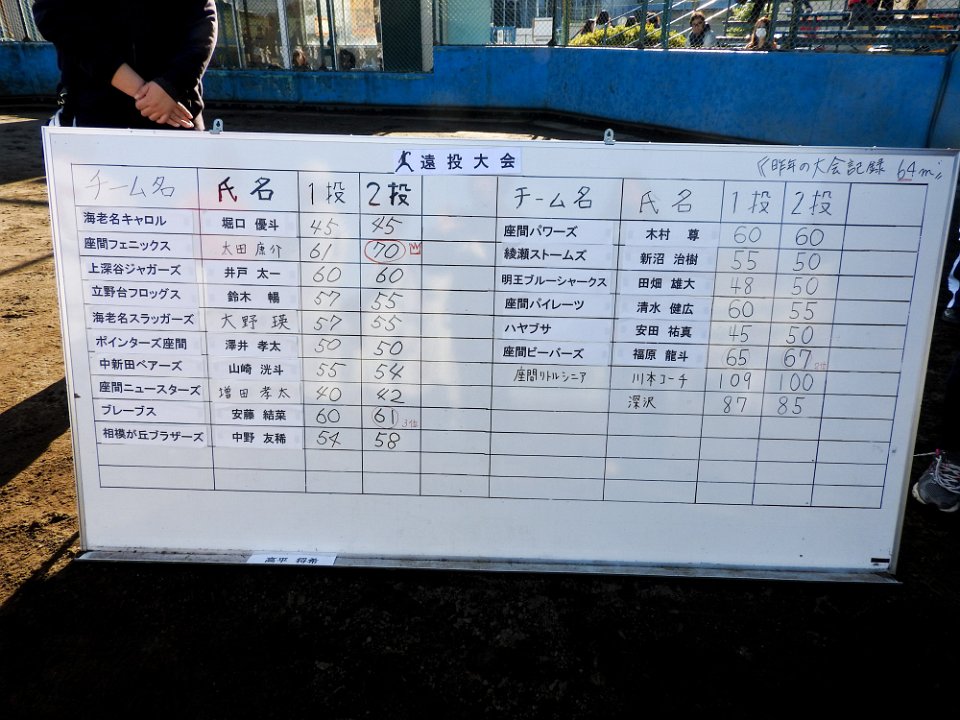 遠投大会
《昨年の大会記録 64m》
チーム名 氏名 1投 2投
海老名キャロル 堀口 優斗 45 45
座間フェニックス 太田 康介 61 70
上深谷ジャガーズ 井戸 太一 60 60
立野台フロッグス 鈴木 暢 57 55
海老名スラッガーズ 大野 瑛 57 55
ポインターズ座間 澤井 孝太 50 50
中新田ベアーズ 山崎 洸斗 55 54
座間ニュースターズ 増田 孝太 40 42
ブレーブス 安藤 結菜 60 61 3位
相模が丘ブラザーズ 中野 友稀 54 58
チーム名 氏名 1投 2投
座間パワーズ 木村 尊 60 60
綾瀬ストームズ 新沼 治樹 55 50
明王ブルーシャークス 田畑 雄大 48 50
座間パイレーツ 清水 健広 60 55
ハヤブサ 安田 祐真 45 50
座間ビーバーズ 福原 龍斗 65 67 2位
座間リトルシニア 川本コーチ 109 100
深沢 87 85
高平 将希